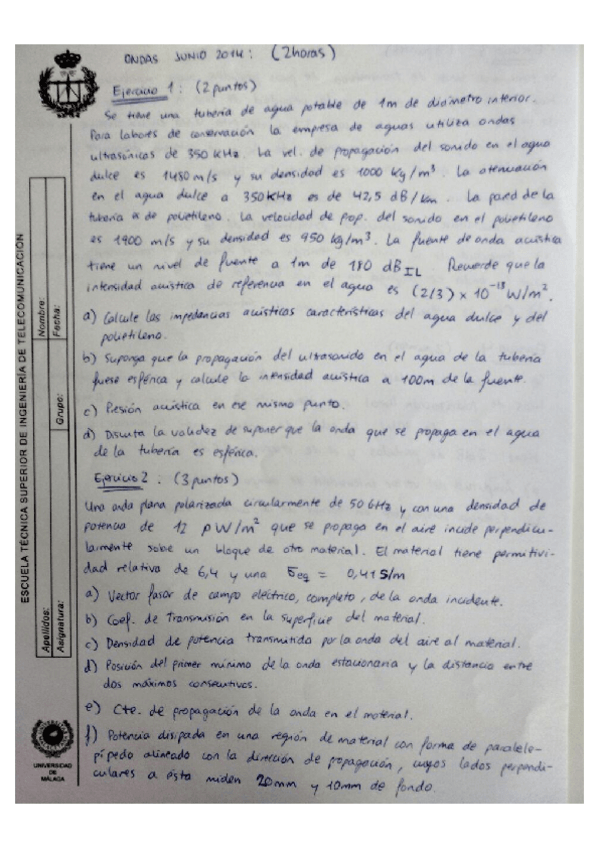 ONDAS JUNIO 2014: (2horas)
Ejercicio 1: (2 puntos)
Se tiene una tubería de agua potable de 1m de diámetro interior.
Para labores de conservación la empresa de aguas utiliza ondas
ultrasónicas de 350 KHz. La vel. de propagación del sonido en el agua
dulce es 1480 m/s y su densidad es 1000 Kg/m³. La atenuación
en el agua dulce a 350KHz es de 42,5 dB/km. La pared de la
tubería es de polietileno. La velocidad de prop. del sonido en el polietileno
es 1900 m/s y su densidad es 950 kg/m³. La fuente de onda acústica
tiene un nivel de fuente a 1m de 180 dB IL. Recuerde que la
intensidad acústica de referencia en el agua es (2/3) x 10⁻¹⁸ W/m².
a) Calcule las impedancias acústicas características del agua dulce y del
polietileno.
b) Suponga que la propagación del ultrasonido en el agua de la tubería
fuese esférica y calcule la intensidad acústica a 100m de la fuente.
c) Presión acústica en ese mismo punto.
d) Discuta la validez de suponer que la onda que se propaga en el agua
de la tubería es esférica.
Ejercicio 2: (3 puntos)
Una onda plana polarizada circularmente de 50 GHz y con una densidad de
potencia de 12 pW/m² que se propaga en el aire incide perpendicu-
larmente sobre un bloque de otro material. El material tiene permitivi-
dad relativa de 6,4 y una σeq = 0,41 S/m
a) Vector fasor de campo eléctrico, completo, de la onda incidente.
b) Coef. de transmisión en la superficie del material.
c) Densidad de potencia transmitida por la onda del aire al material.
d) Posición del primer mínimo de la onda estacionaria y la distancia entre
dos máximos consecutivos.
e) Cte. de propagación de la onda en el material.
f) Potencia disipada en una región de material con forma de paralele-
pípedo alineado con la dirección de propagación, cuyos lados perpendi-
culares a ésta miden 20mm y 10mm de fondo.
ESCUELA TÉCNICA SUPERIOR DE INGENIERÍA DE TELECOMUNICACIÓN
Apellidos:
Nombre:
Asignatura:
Grupo:
Fecha:
UNIVERSIDAD
DE
MÁLAGA